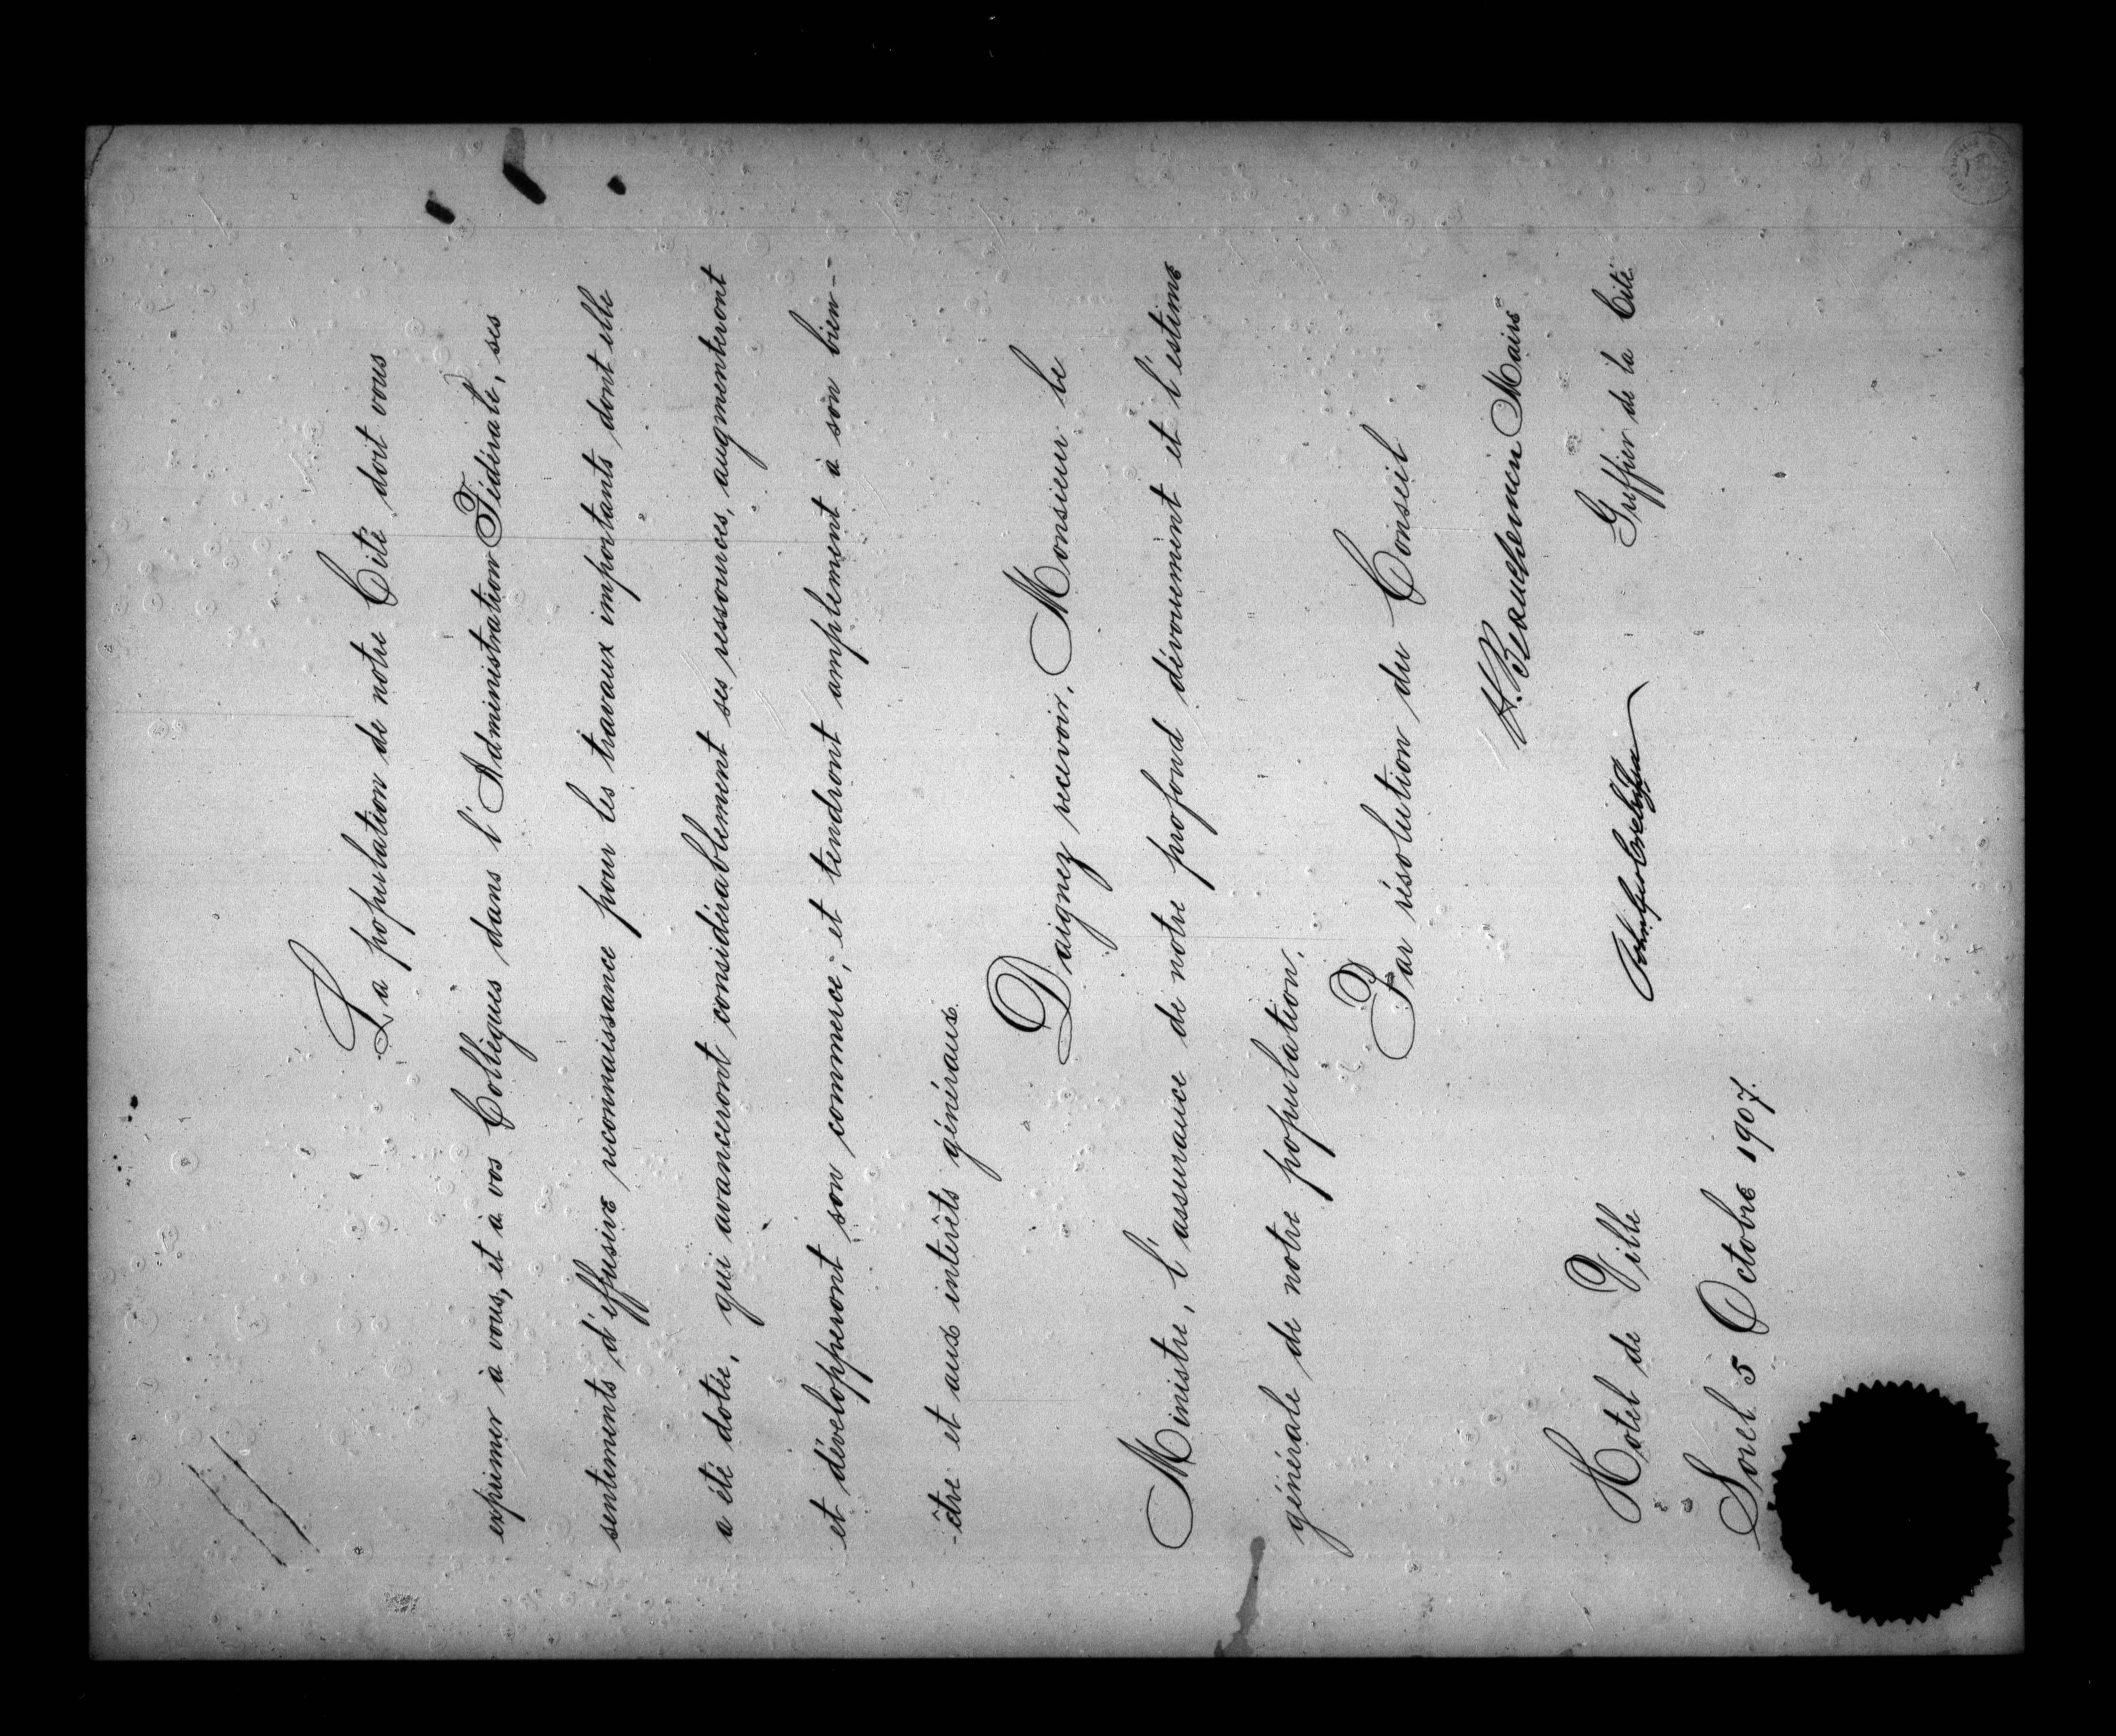 La population de notre Cité doit vous
exprimer à vous, et à vos Collègues dans l'Administration Fédérale, ses
sentiments d'effusive reconnaissance pour les travaux importants dont elle
a été dotée, qui avanceront considérablement ses ressources, augmenteront
et développeront son commerce, et tendront amplement à son bien-
-être et aux intérêts généraux.
Daignez recevoir, Monsieur le
Ministre, l'assurance de notre profond dévouement et l'estime
générale de notre population.
Par résolution du Conseil
H. Beauchemin Maire
Greffier de la Cité
Hotel de Ville
Sorel 5 Octobre 1907.